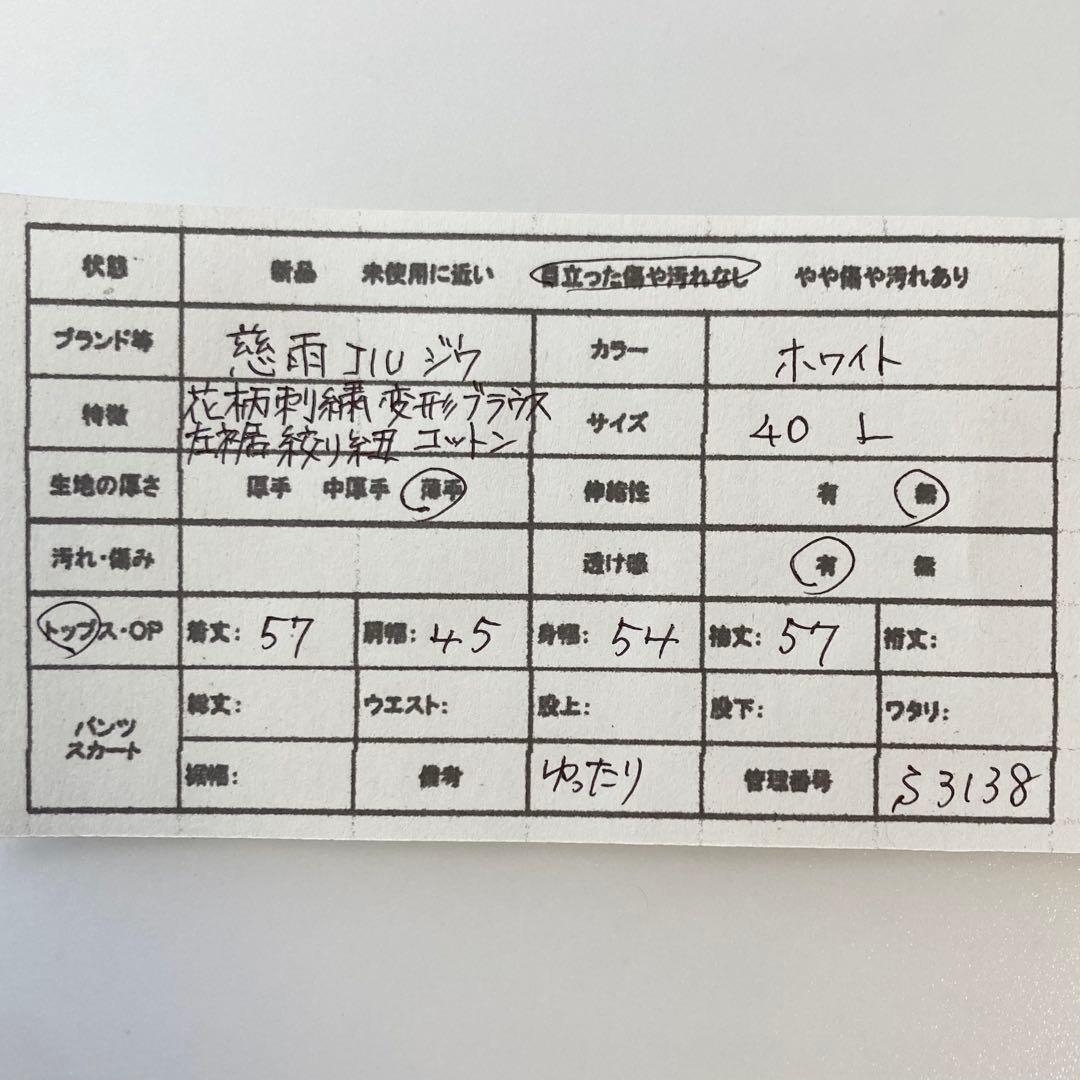 状態 新品 未使用に近い 目立った傷や汚れなし やや傷や汚れあり
ブランド等 慈雨 JIU ジウ カラー ホワイト
特徴 花柄刺繍 変形ブラウス サイズ 40 L
左裾絞り紐 コットン
生地の厚さ 厚手 中厚手 薄手 伸縮性 有 無
汚れ・傷み 透け感 有 無
トップス・OP 着丈: 57 肩幅: 45 身幅: 54 袖丈: 57 裄丈:
パンツ 総丈: ウエスト: 股上: 股下: ワタリ:
スカート
裾幅: 備考 ゆったり 管理番号 S3138